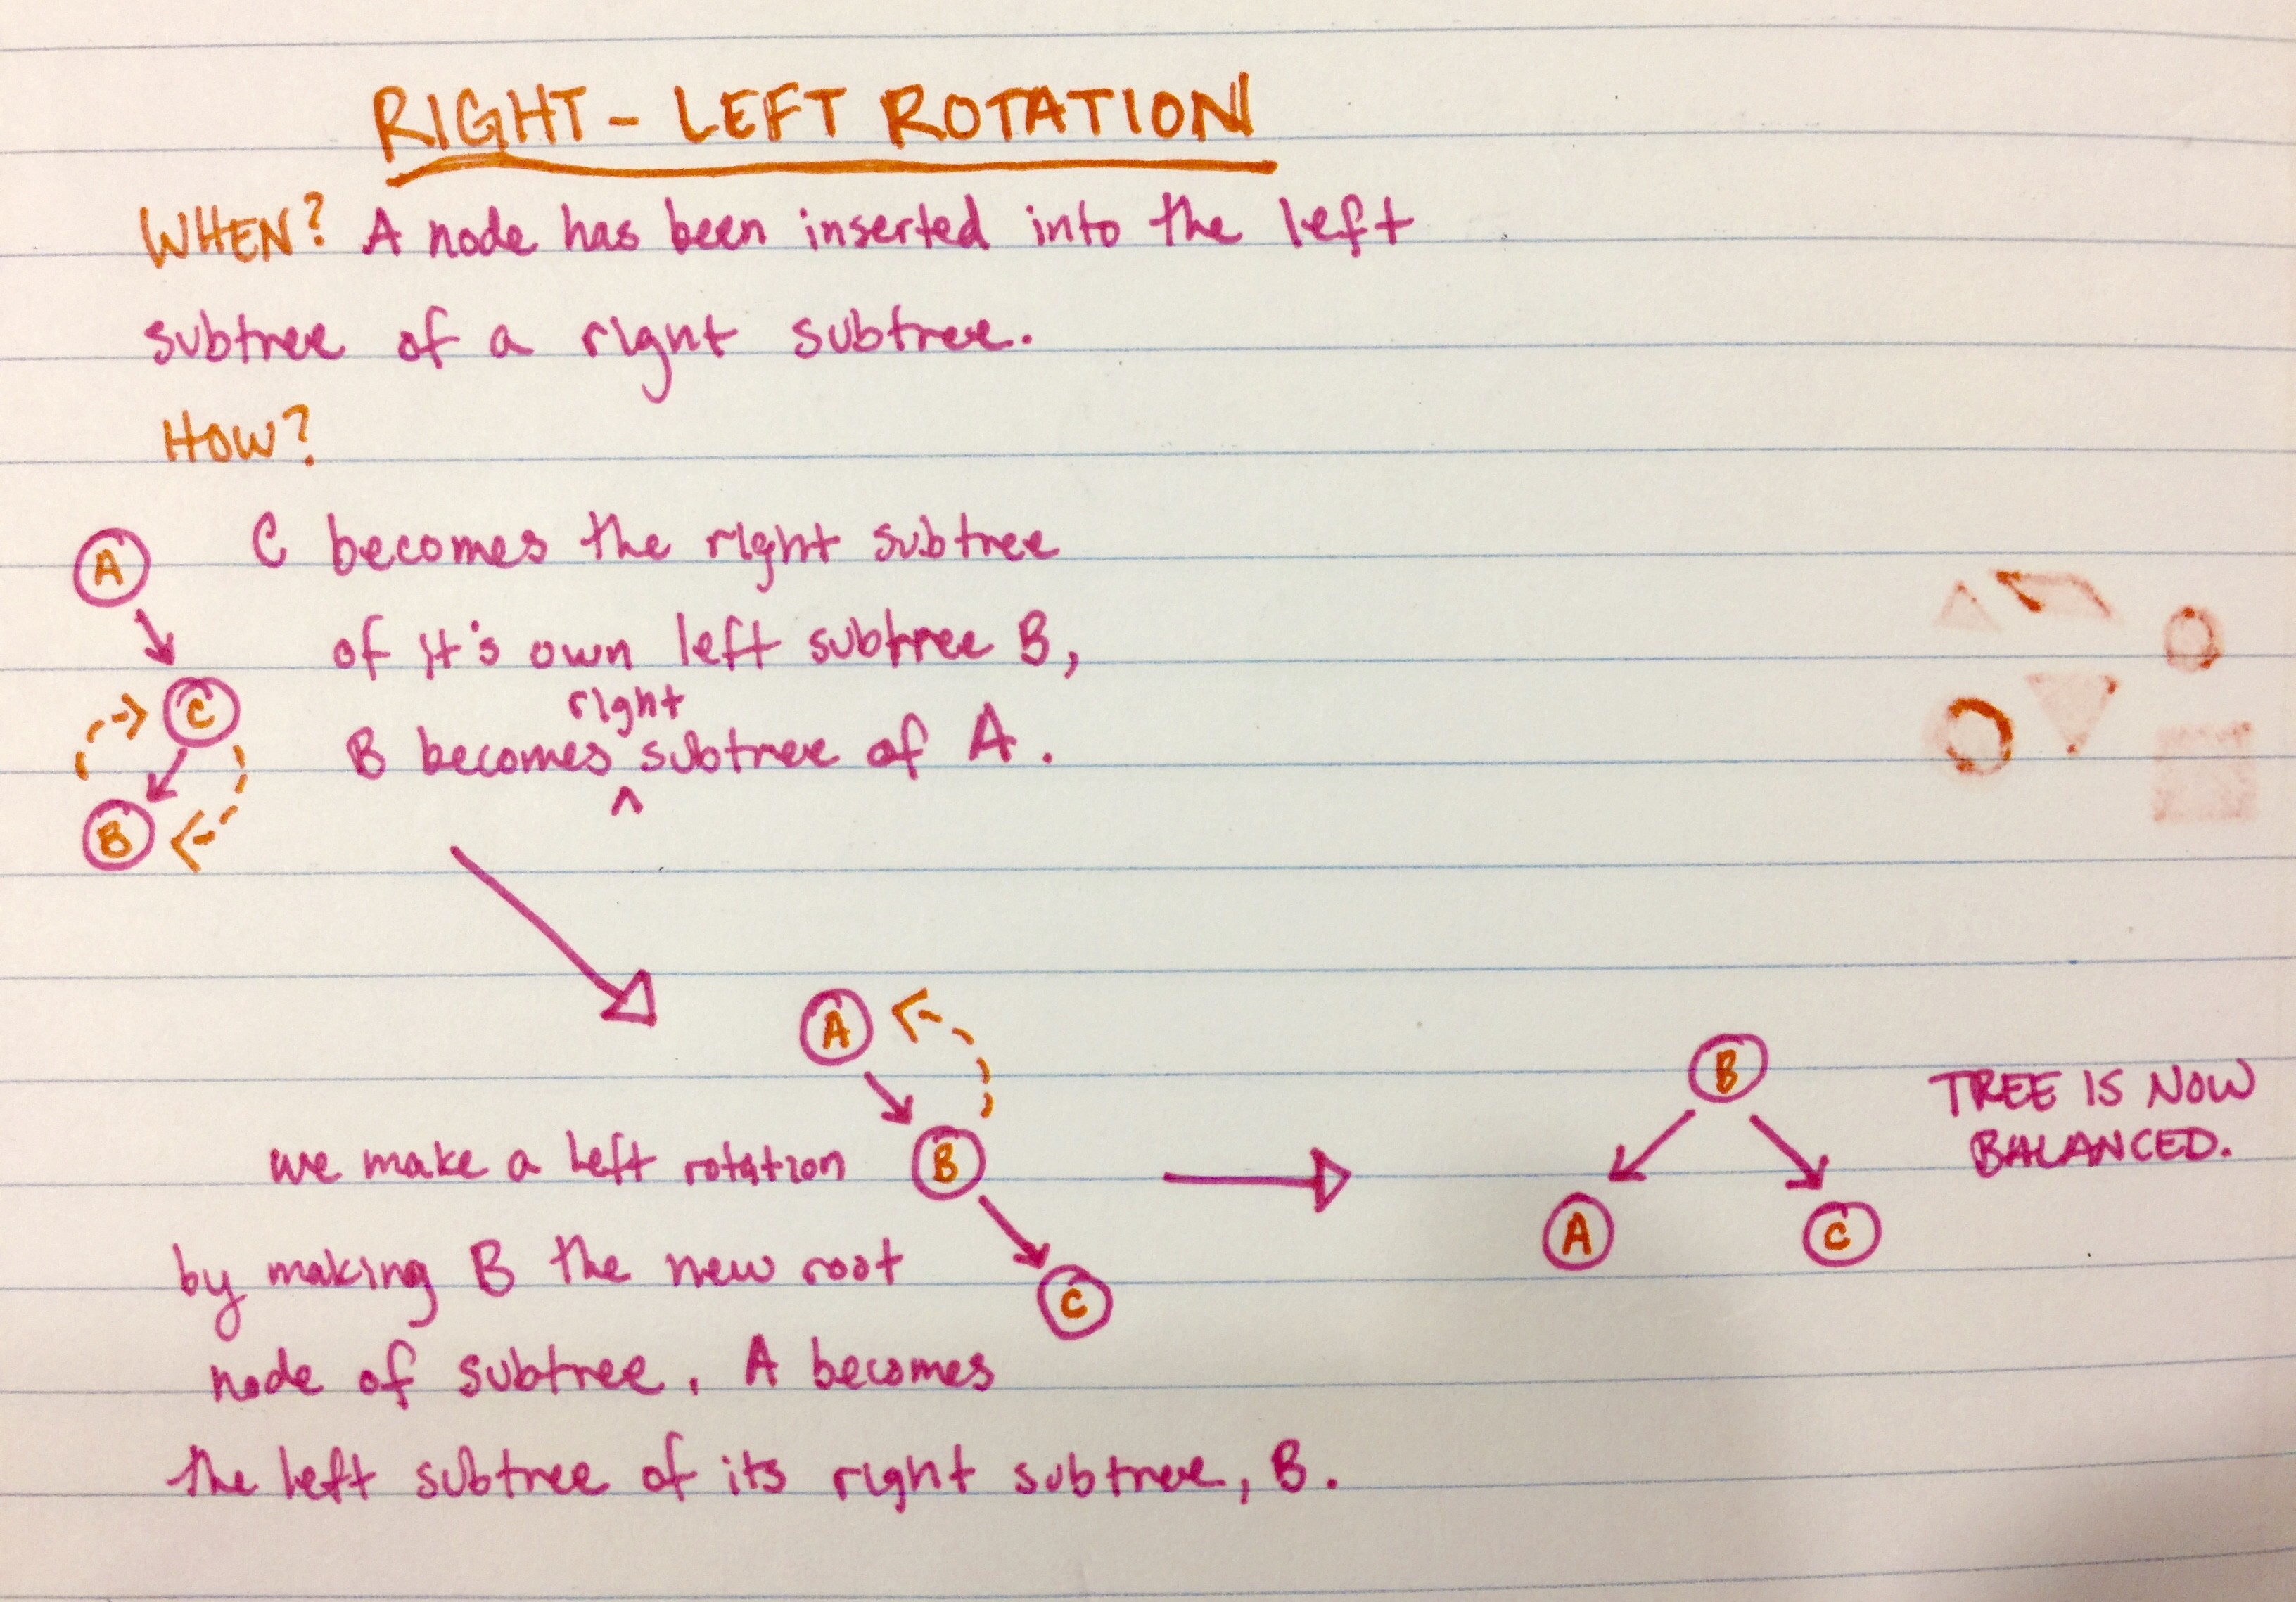 RIGHT - LEFT ROTATION
WHEN? A node has been inserted into the left
subtree of a right subtree.
HOW?
A
C
B
C becomes the right subtree
of it's own left subtree B,
right
B becomes ^ subtree of A.
A
B
C
we make a left rotation
by making B the new root
node of subtree. A becomes
the left subtree of its right subtree, B.
B
A
C
TREE IS NOW
BALANCED.